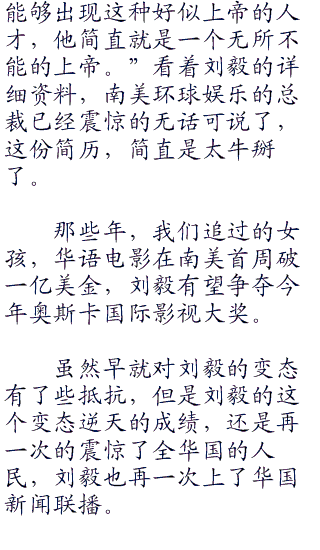 能够出现这种好似上帝的人
才，他简直就是一个无所不
能的上帝。”看着刘毅的详
细资料，南美环球娱乐的总
裁已经震惊的无话可说了，
这份简历，简直是太牛掰
了。
那些年，我们追过的女
孩，华语电影在南美首周破
一亿美金，刘毅有望争夺今
年奥斯卡国际影视大奖。
虽然早就对刘毅的变态
有了些抵抗，但是刘毅的这
个变态逆天的成绩，还是再
一次的震惊了全华国的人
民，刘毅也再一次上了华国
新闻联播。